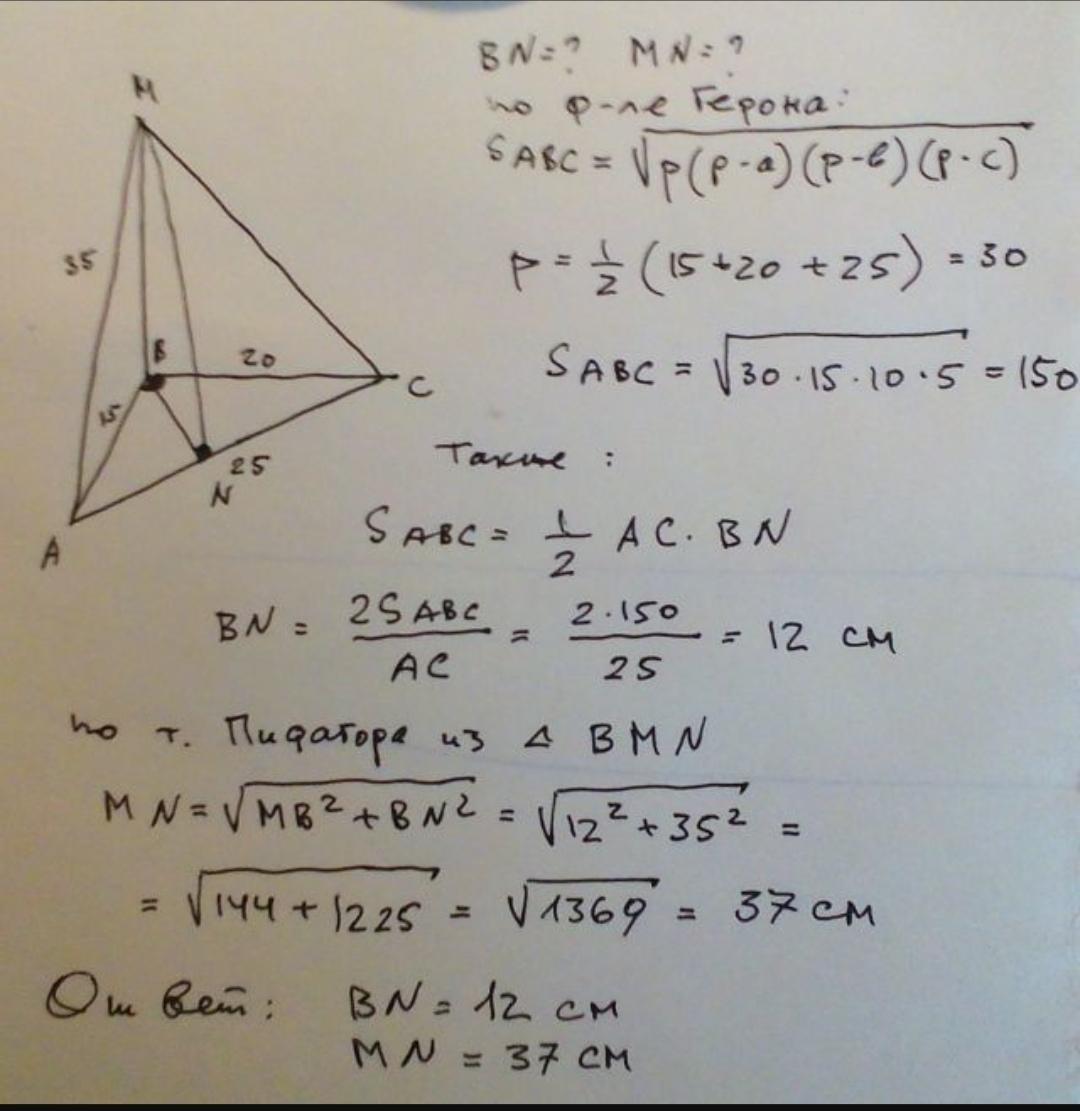 BN=? MN=?
по ф-ле Герона:
S ABC = √p(p-a)(p-b)(p-c)
M
35
B
20
C
15
25
N
A
p = 1/2 (15+20+25) = 30
S ABC = √30·15·10·5 = 150
Также:
S ABC = 1/2 AC·BN
BN = 2S ABC / AC = 2·150 / 25 = 12 см
по т. Пифагора из △ BMN
MN = √MB² + BN² = √12² + 35² =
= √144 + 1225 = √1369 = 37 см
Ответ: BN = 12 см
MN = 37 см